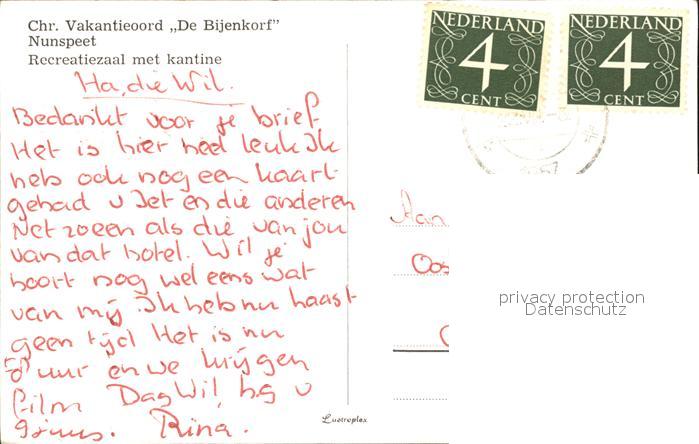 Chr. Vakantieoord „De Bijenkorf”
Nunspeet
Recreatiezaal met kantine
Ha, die Wil.
Bedankt voor je brief
Het is hier heel leuk Ik
heb ook nog een kaart
gehad v Jet en die anderen
Net zo een als die van jou
van dat hotel. Wil je
hoort nog wel eens wat
van mij Ik heb nu haast
geen tijd Het is nu
8 uur en we krijgen
film Dag Wil h.g v
Rina.
Lustroplex
NEDERLAND
4
CENT
NEDERLAND
4
CENT
Aan
Oos
privacy protection
Datenschutz